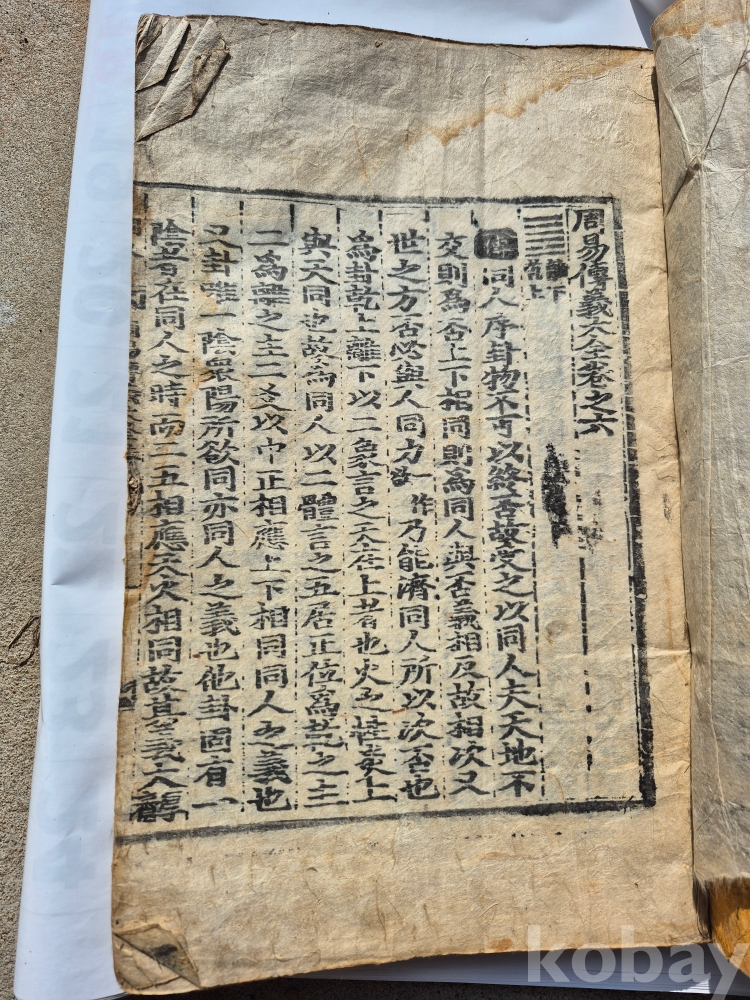 周易傳義大全卷之六
離下
乾上
傳同人序卦物不可以終否故受之以同人夫天地不
交則為否上下相同則為同人與否義相反故相次又
世之方否必與人同力 作乃能濟同人所以次否也
為卦乾上離下以二象言之天在上者也火之性炎上
與天同也故為同人以二體言之五居正位為乾之主
二為離之主二爻以中正相應上下相同同人之義也
又卦唯一陰衆陽所欲同亦同人之義也他卦固有一
陰者在同人之時而二五相應天火相同故其義大
kobay